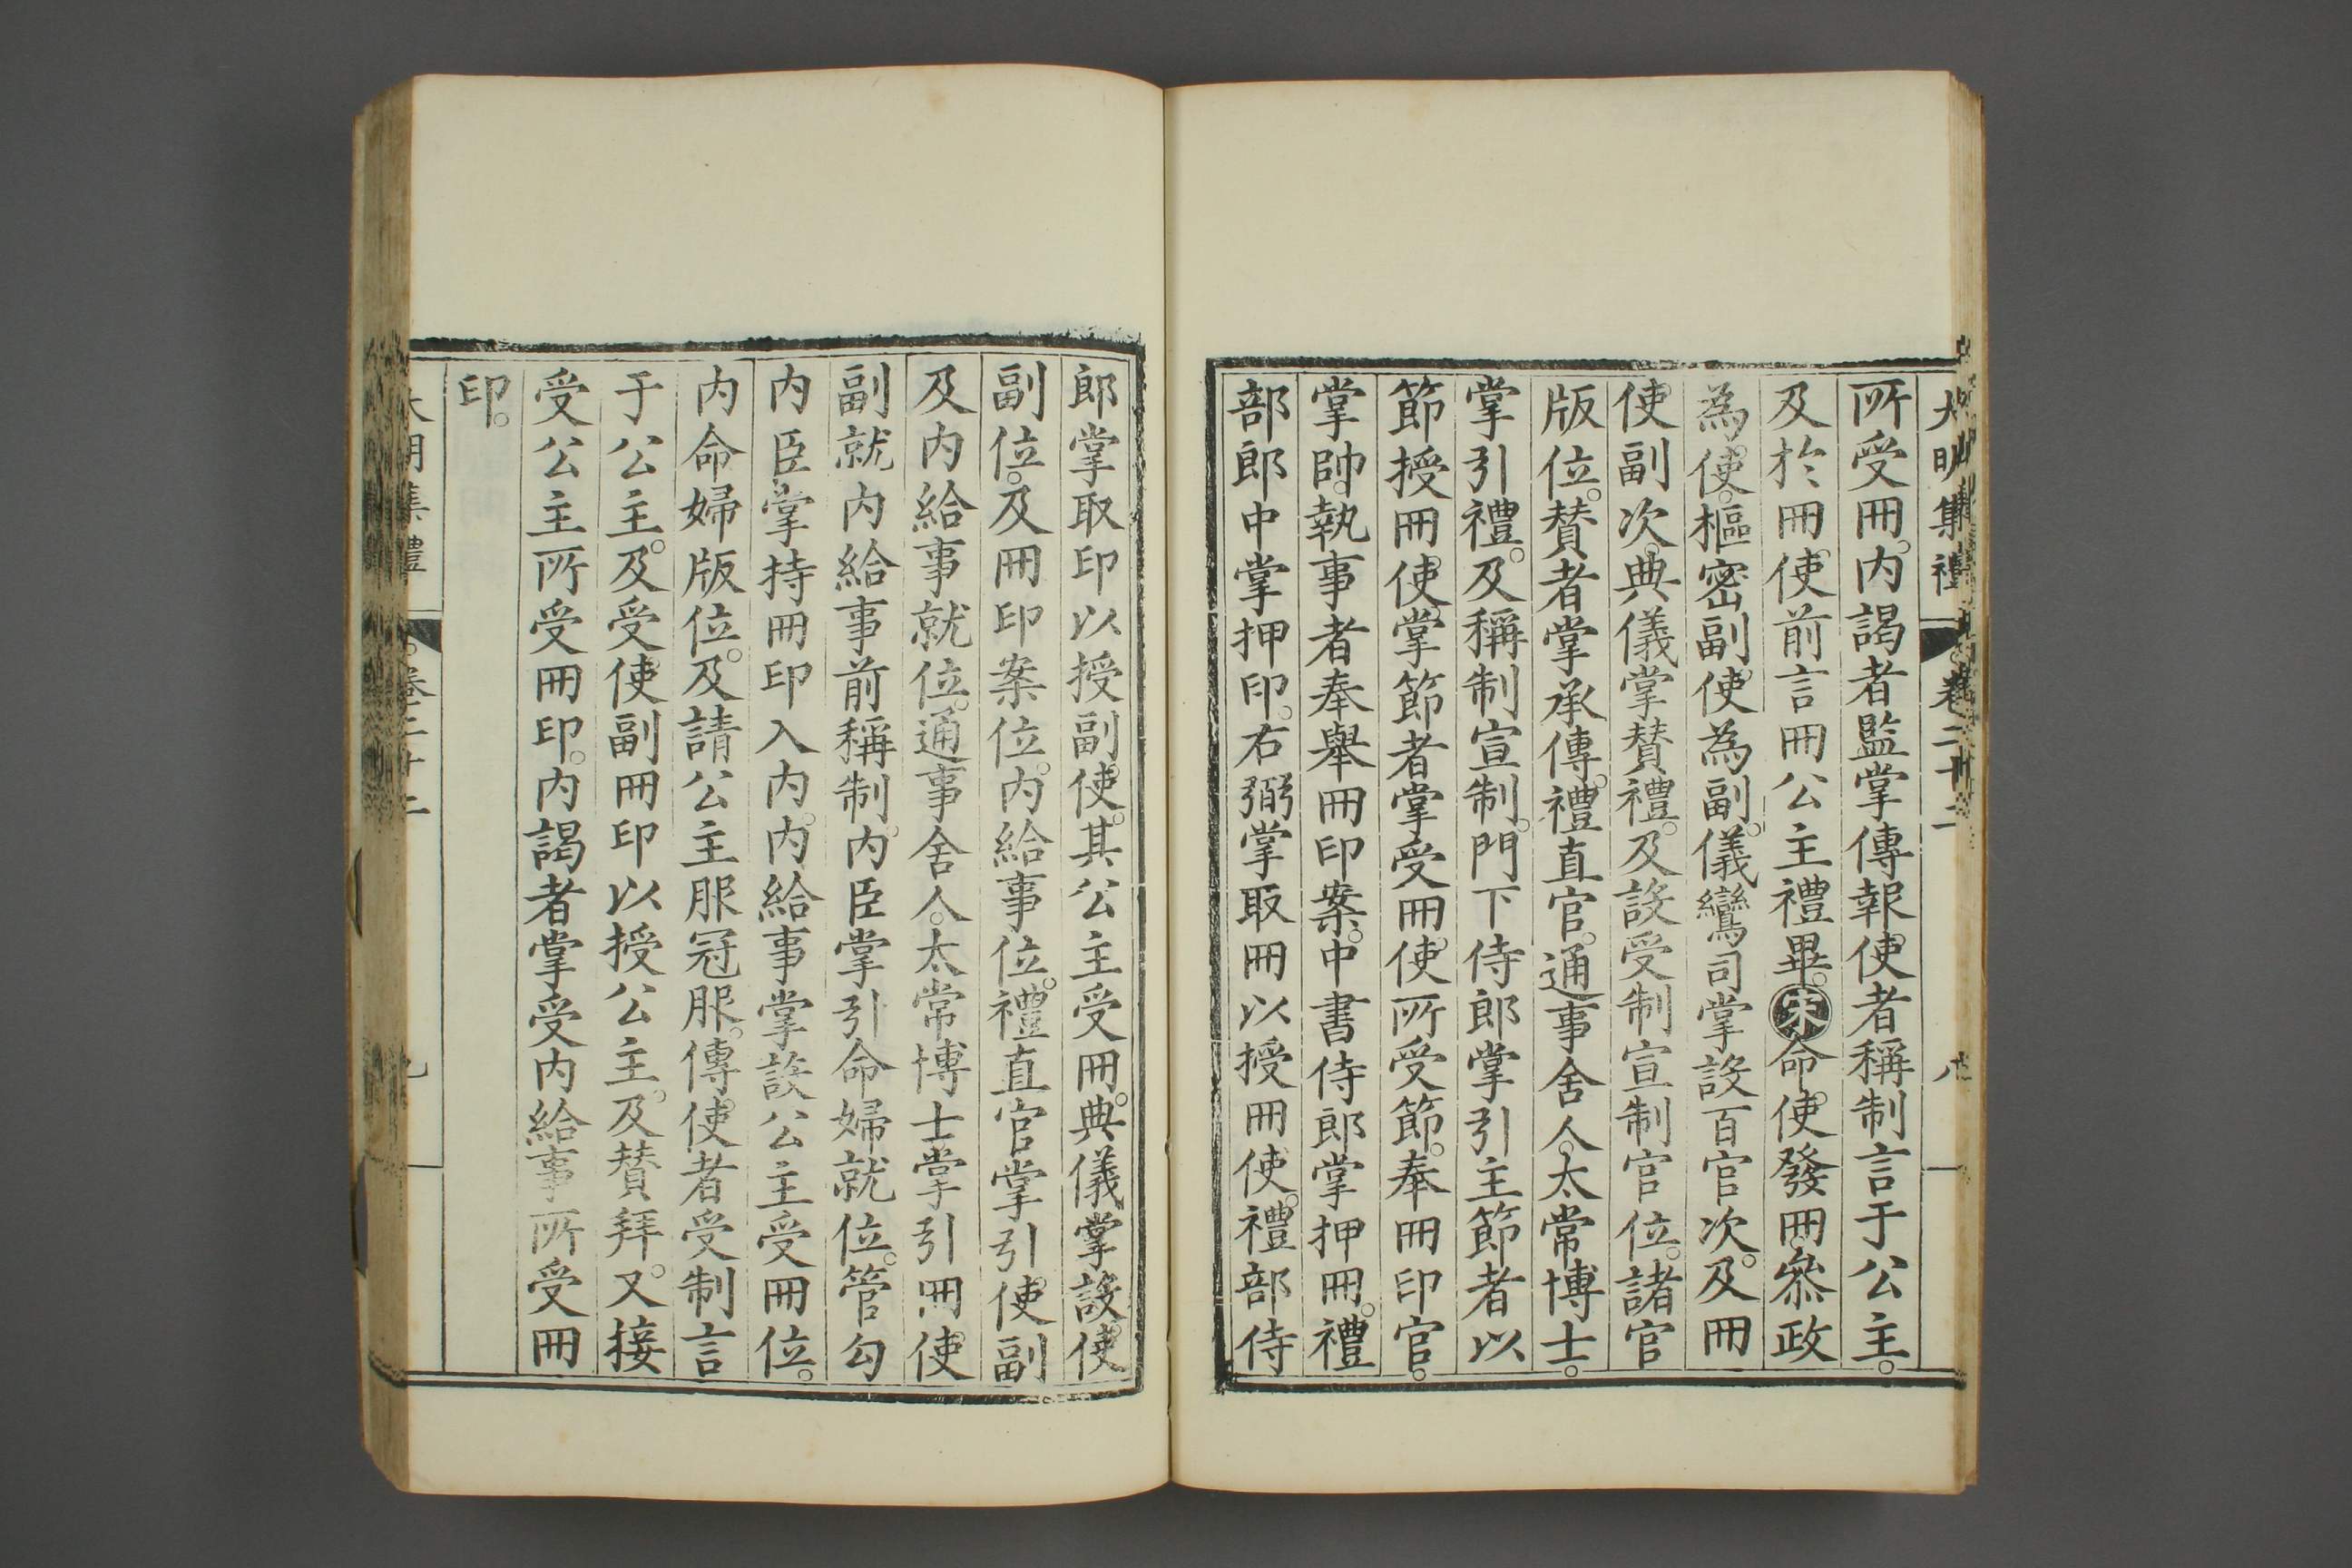 大明集禮
卷二十二
八
所受冊。内謁者監掌傳報。使者稱制言于公主。
及於冊使。前言冊公主禮畢。宋命使發冊。叅政
為使。樞密副使為副。儀鸞司掌設百官次。及冊
使副次。典儀掌賛禮。及設受制宣制官位。諸官
版位。賛者掌承傳。禮直官。通事舍人。太常博士。
掌引禮。及稱制宣制。門下侍郎掌引主節者以
節授冊使。掌節者掌受冊使所受節。奉冊印官。
掌帥執事者奉舉冊印案。中書侍郎掌押冊。禮
部郎中掌押印。右弼掌取冊以授冊使。禮部侍
郎掌取印以授副使。其公主受冊。典儀掌設使
副位。及冊印案位。内給事位。禮直官掌引使副
及内給事就位。通事舍人。太常博士掌引冊使
副就内給事前稱制。内臣掌引命婦就位。管勾
内臣掌持冊印入内。内給事掌設公主受冊位。
内命婦版位。及請公主服冠服。傳使者受制言
于公主。及受使副冊印以授公主。及賛拜。又接
受公主所受冊印。内謁者掌受内給事所受冊
印。
大明集禮
卷二十二